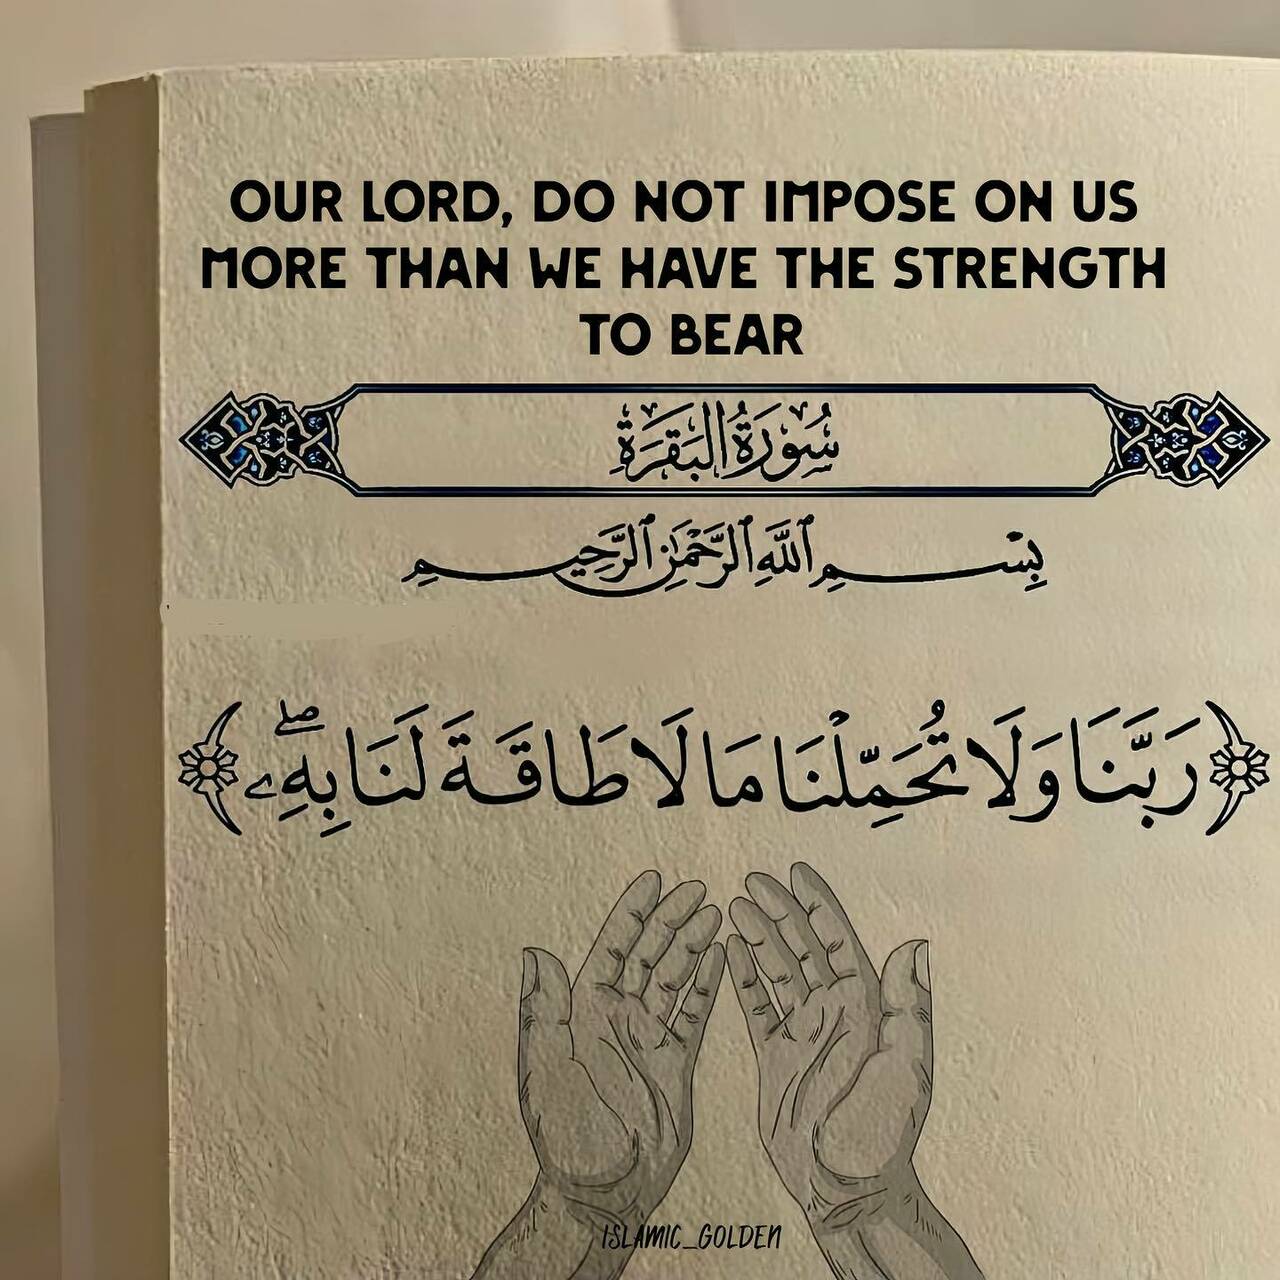 OUR LORD, DO NOT IMPOSE ON US
MORE THAN WE HAVE THE STRENGTH
TO BEAR
سُورَةُ البَقَرَةِ
بِسْمِ ٱللَّهِ ٱلرَّحْمَٰنِ ٱلرَّحِيمِ
﴿رَبَّنَا وَلَا تُحَمِّلْنَا مَا لَا طَاقَةَ لَنَا بِهِۦۖ﴾
ISLAMIC_GOLDEN